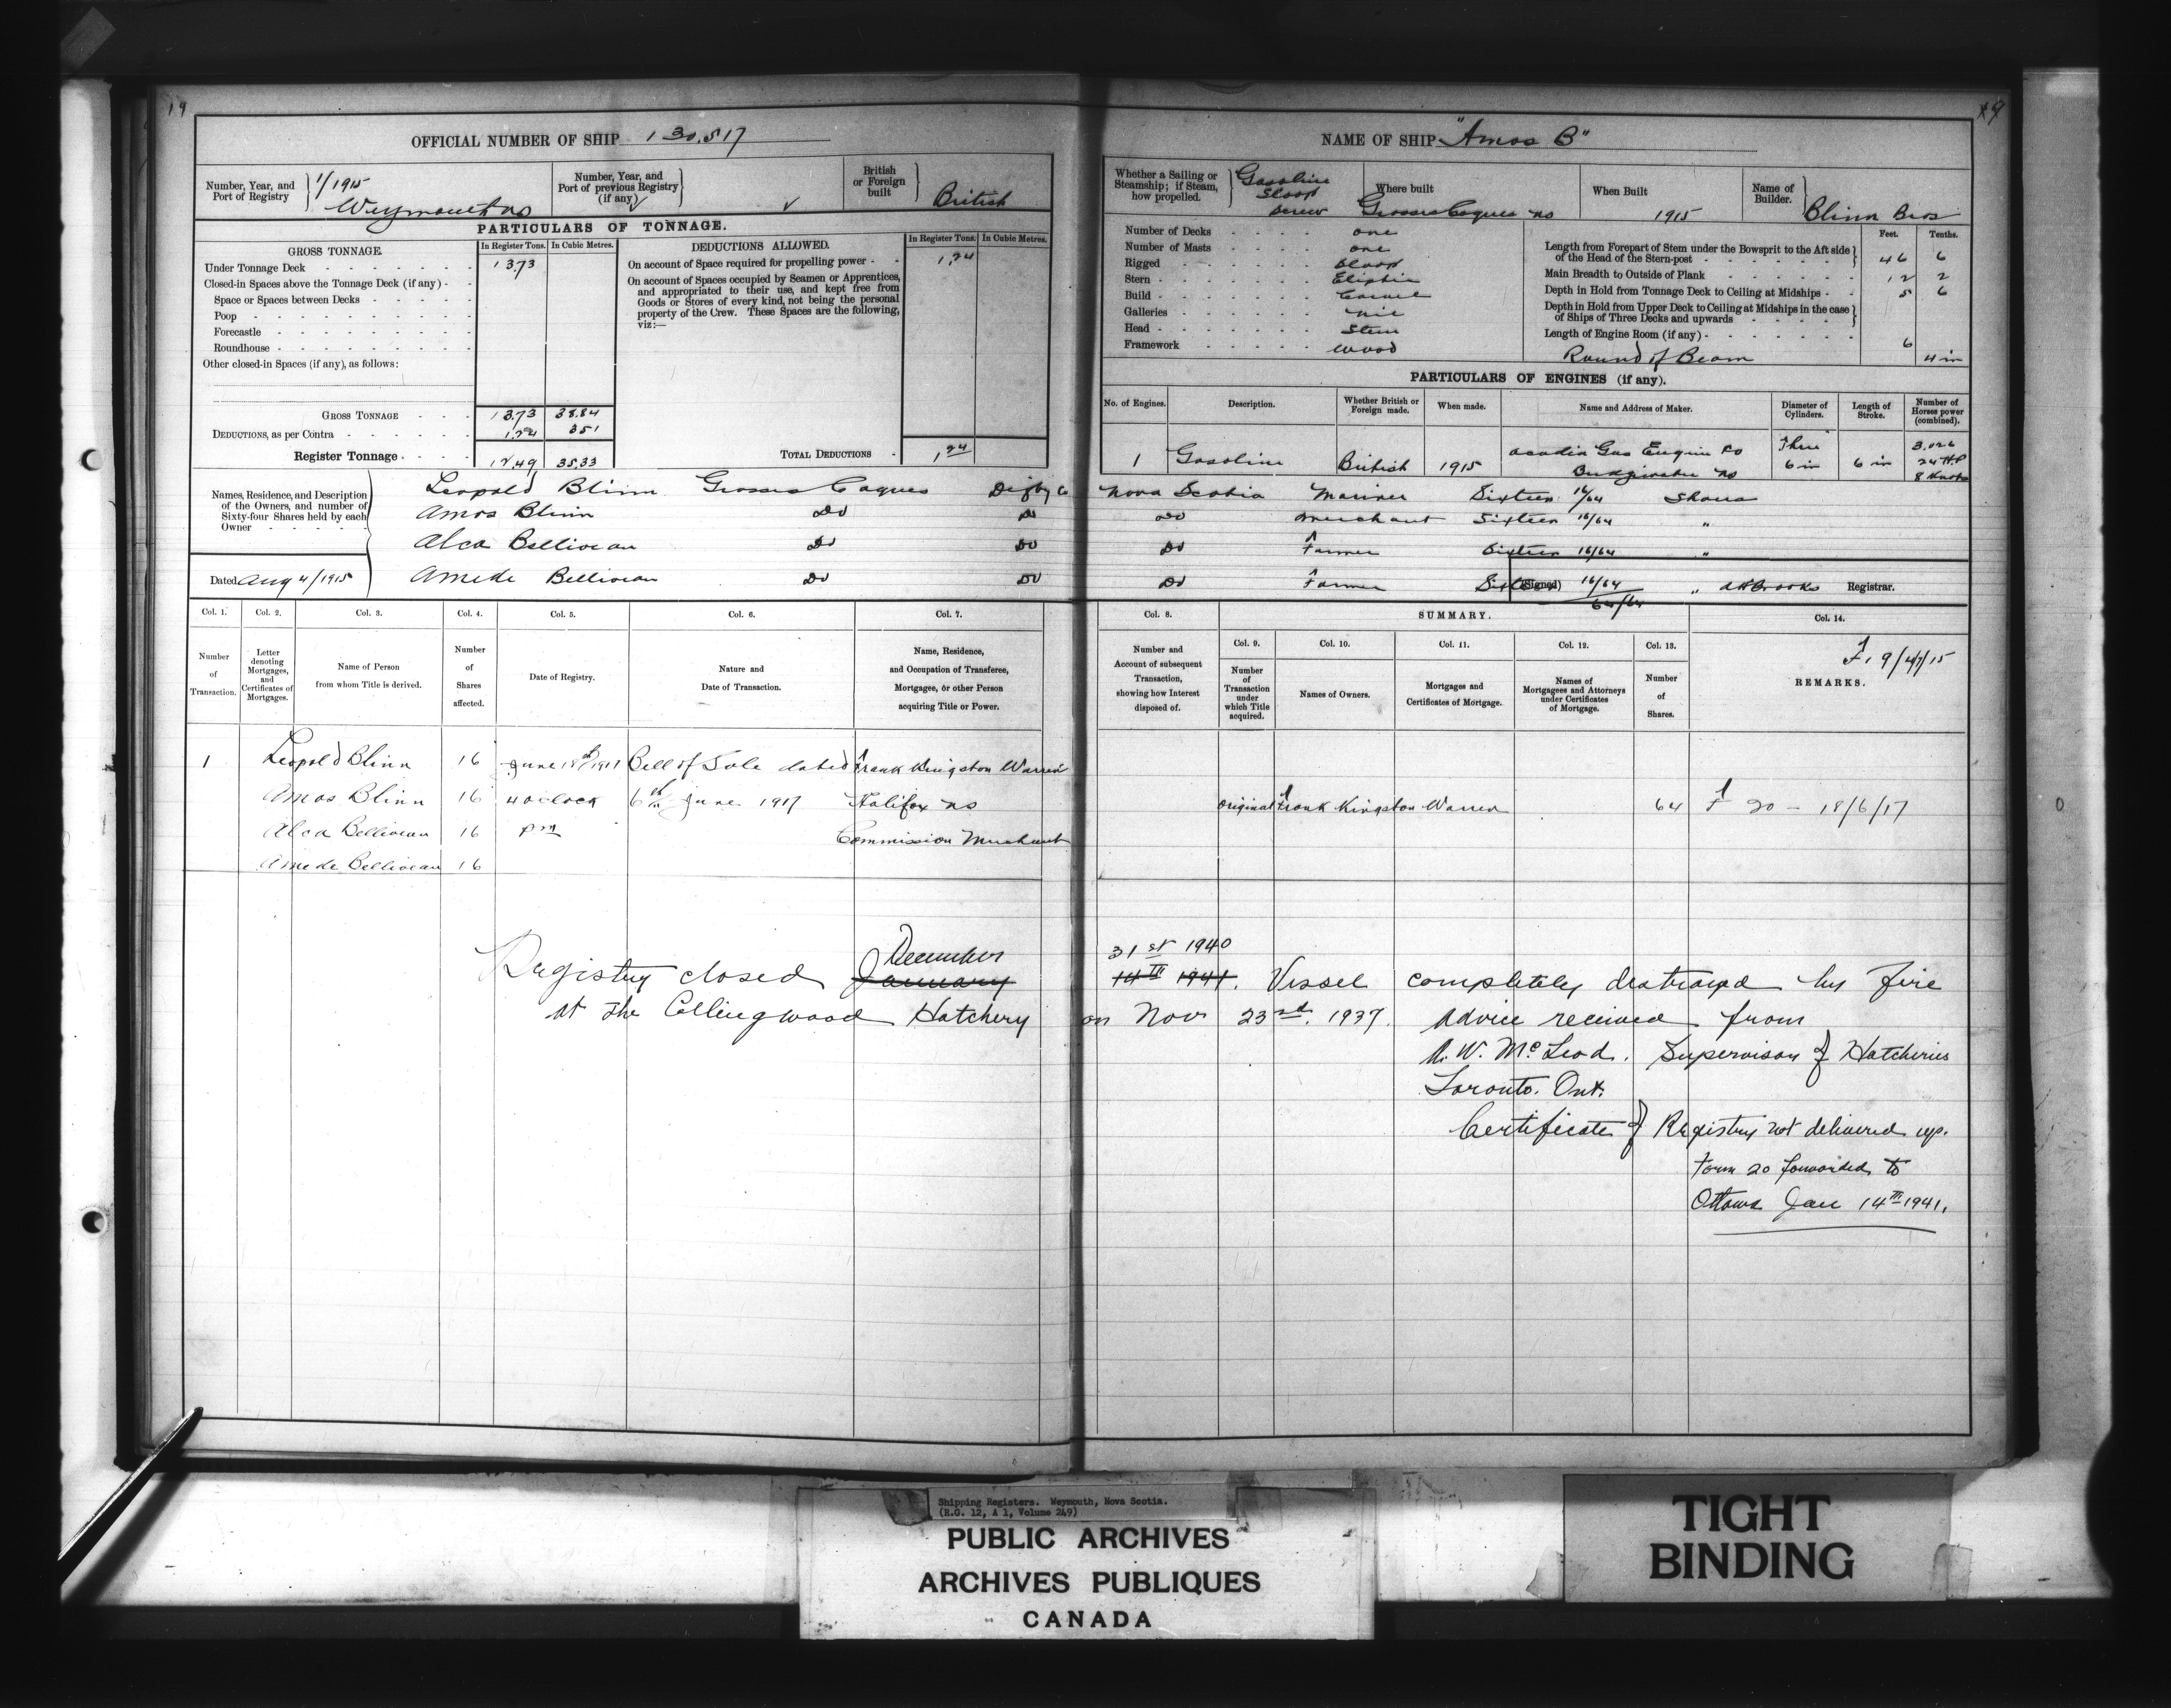 19
OFFICIAL NUMBER OF SHIP 130,517
Number, Year, and Port of Registry 1/1915 Weymouth NS
Number, Year, and Port of previous Registry (if any)
British or Foreign built British
PARTICULARS OF TONNAGE.
GROSS TONNAGE.
In Register Tons. In Cubic Metres.
DEDUCTIONS ALLOWED.
In Register Tons. In Cubic Metres.
Under Tonnage Deck 13.73
On account of Space required for propelling power 1.24
Closed-in Spaces above the Tonnage Deck (if any)
Space or Spaces between Decks
Poop
Forecastle
Roundhouse
Other closed-in Spaces (if any), as follows:
On account of Spaces occupied by Seamen or Apprentices,
and appropriated to their use, and kept free from
Goods or Stores of every kind, not being the personal
property of the Crew. These Spaces are the following,
viz:—
GROSS TONNAGE 13.73 38.84
DEDUCTIONS, as per Contra 1.24 351
Register Tonnage 12.49 35.33
TOTAL DEDUCTIONS 1 24
NAME OF SHIP "Amos B"
Whether a Sailing or Steamship; if Steam, how propelled. Gasoline Sloop Screw
Where built Grosses Coques NS
When Built 1915
Name of Builder. Blinn Bros
Number of Decks one
Number of Masts one
Rigged Sloop
Stern Eliptic
Build Carvel
Galleries nil
Head Stem
Framework wood
Feet. Tenths.
Length from Forepart of Stem under the Bowsprit to the Aft side of the Head of the Stern-post 46 6
Main Breadth to Outside of Plank 12 2
Depth in Hold from Tonnage Deck to Ceiling at Midships 5 6
Depth in Hold from Upper Deck to Ceiling at Midships in the case of Ships of Three Decks and upwards
Length of Engine Room (if any) 6
Round of Beam 4 in
PARTICULARS OF ENGINES (if any).
No. of Engines. Description. Whether British or Foreign made. When made. Name and Address of Maker. Diameter of Cylinders. Length of Stroke. Number of Horses power (combined).
1 Gasoline British 1915 Acadia Gas Engine Co Bridgewater NS Three 6 in 6 in 24 HP 8 Knots
Names, Residence, and Description of the Owners, and number of Sixty-four Shares held by each Owner
Leopold Blinn Grosses Coques Digby Co Nova Scotia Mariner Sixteen 16/64 Shares
Amos Blinn Do Do Do Merchant Sixteen 16/64 "
Alca Belliveau Do Do Do Farmer Sixteen 16/64 "
Dated Aug 4/1915
Amede Belliveau Do Do Do Farmer Sixteen 16/64 "
64/64
(Signed) Registrar.
Col. 1. Col. 2. Col. 3. Col. 4. Col. 5. Col. 6. Col. 7.
Number of Transaction.
Letter denoting Mortgages, and Certificates of Mortgages.
Name of Person from whom Title is derived.
Number of Shares affected.
Date of Registry.
Nature and Date of Transaction.
Name, Residence, and Occupation of Transferee, Mortgagee, or other Person acquiring Title or Power.
Col. 8.
Number and Account of subsequent Transaction, showing how Interest disposed of.
SUMMARY.
Col. 9. Col. 10. Col. 11. Col. 12. Col. 13.
Number of Transaction under which Title acquired.
Names of Owners.
Mortgages and Certificates of Mortgage.
Names of Mortgagees and Attorneys under Certificates of Mortgage.
Number of Shares.
Col. 14.
REMARKS.
1 Leopold Blinn 16 June 18th 1917 Bill of Sale dated Frank Kingston Warren
Amos Blinn 16 4 oclock 6th June 1917 Halifax NS
Original Frank Kingston Warren 64 F 20 - 18/6/17
Alca Belliveau 16 pm Commission Merchant
Amede Belliveau 16
December 31st 1940
Registry closed January 14th 1941. Vessel completely destroyed by fire
at the Collingwood Hatchery on Nov 23rd. 1937. Advice received from
W. McLeod. Supervisor of Hatcheries
Toronto. Ont.
Certificate of Registry not delivered up.
Form 20 forwarded to
Ottawa Jan 14th 1941.
Shipping Registers. Weymouth, Nova Scotia.
(R.G. 12, A 1, Volume 249)
PUBLIC ARCHIVES
ARCHIVES PUBLIQUES
CANADA
TIGHT
BINDING